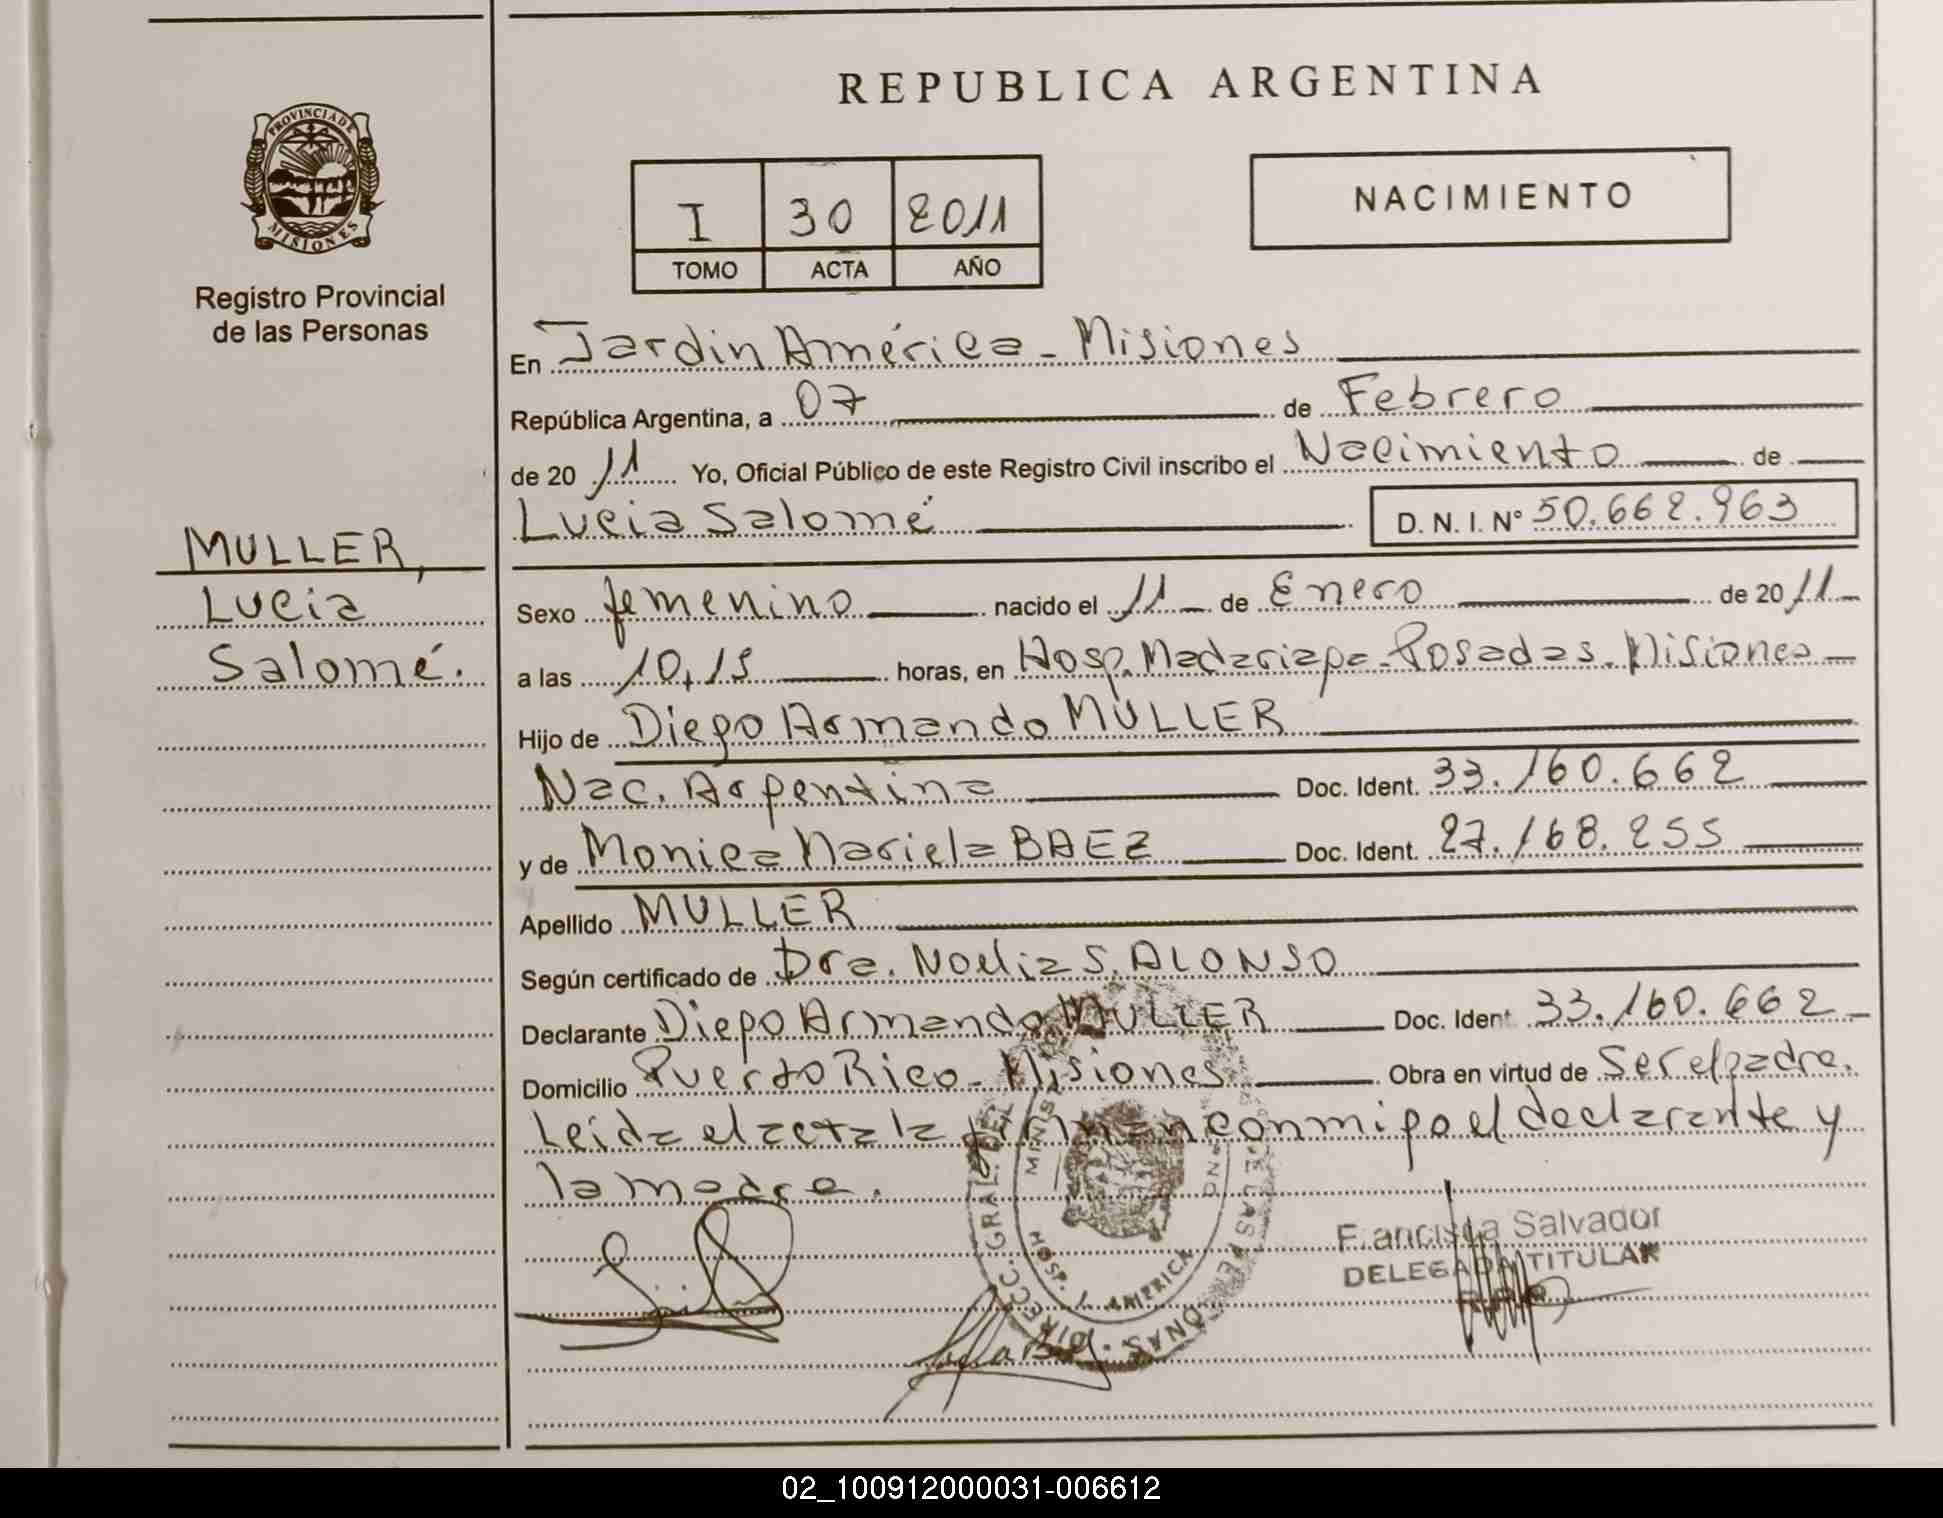 REPUBLICA ARGENTINA
PROVINCIA DE MISIONES
Registro Provincial
de las Personas
I 30 2011
TOMO ACTA AÑO
NACIMIENTO
MULLER,
Lucia
Salomé.
En Jardin América - Misiones
República Argentina, a 07 de Febrero
de 20 11 Yo, Oficial Público de este Registro Civil inscribo el Nacimiento de
Lucia Salomé D. N. I. N° 50.662.963
Sexo femenino nacido el 11 de Enero de 20 11
a las 10,15 horas, en Hosp. Madariaga - Posadas. Misiones
Hijo de Diego Armando MULLER
Nac. Argentina Doc. Ident. 33.160.662
y de Monica Mariela BAEZ Doc. Ident. 27.168.255
Apellido MULLER
Según certificado de Dra. Noelia S. ALONSO
Declarante Diego Armando MULLER Doc. Ident. 33.160.662
Domicilio Puerto Rico - Misiones Obra en virtud de Ser el padre.
Leida el acta la firman conmigo el declarante y
la madre.
DIRECC. GRAL. DEL
HOSP. J. AMERICA
Francisca Salvador
DELEGADA TITULAR
02_100912000031-006612